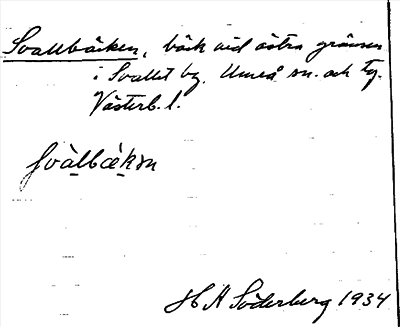 Svallbäcken, bäck vid östra gränsen
i Svallet by. Umeå sn. och tg.
Västerb. l.
svàlbæ̀kən
H A Söderberg 1934